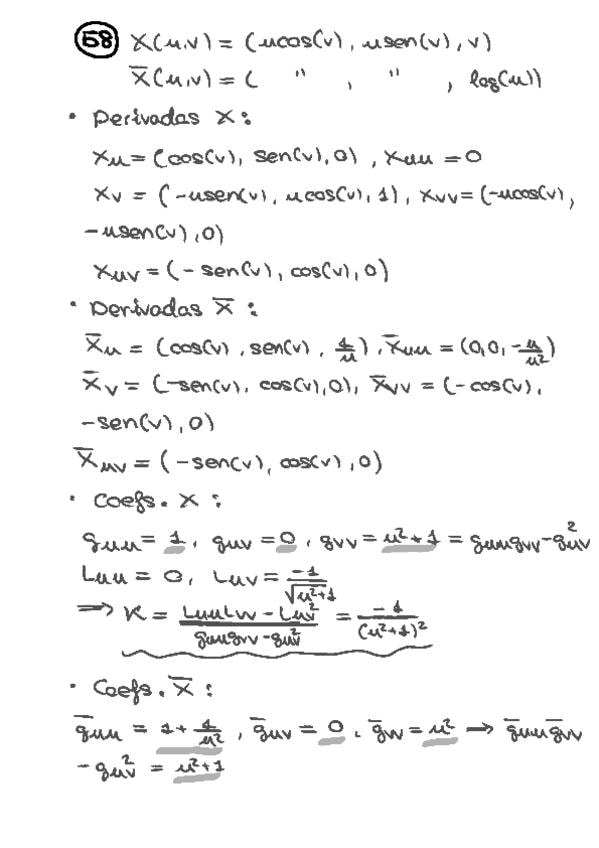 58 X(u,v) = (ucos(v), usen(v), v)
X̄(u,v) = ( " , " , log(u))
• Derivadas X:
Xu = (cos(v), sen(v), 0), Xuu = 0
Xv = (-usen(v), ucos(v), 1), Xvv = (-ucos(v),
-usen(v), 0)
Xuv = (-sen(v), cos(v), 0)
• Derivadas X̄:
X̄u = (cos(v), sen(v), 1/u), X̄uu = (0,0, -u/u²)
X̄v = (-sen(v), cos(v), 0), X̄vv = (-cos(v),
-sen(v), 0)
X̄uv = (-sen(v), cos(v), 0)
• Coefs. X:
guu = 1, guv = 0, gvv = u²+1 = guugvv-guv²
Luu = 0, Luv = -1/√(u²+1)
⟹ K = (LuuLvv - Luv²)/(guugvv-guv²) = -1/(u²+1)²
• Coefs. X̄:
ḡuu = 1+1/u², ḡuv = 0, ḡvv = u² → ḡuuḡvv
-guv² = u²+1